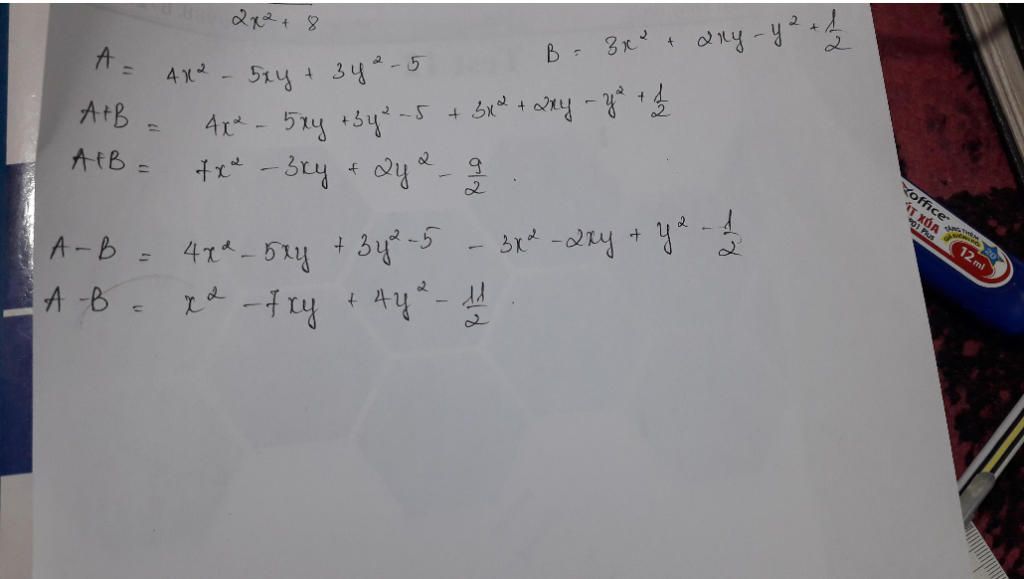 2x² + 8
A = 4x² - 5xy + 3y² - 5 B = 3x² + 2xy - y² + 1/2
A+B = 4x² - 5xy + 3y² - 5 + 3x² + 2xy - y² + 1/2
A+B = 7x² - 3xy + 2y² - 9/2 .
A - B = 4x² - 5xy + 3y² - 5 - 3x² - 2xy + y² - 1/2
A - B = x² - 7xy + 4y² - 11/2 .
office
ÚT XÓA
12 ml